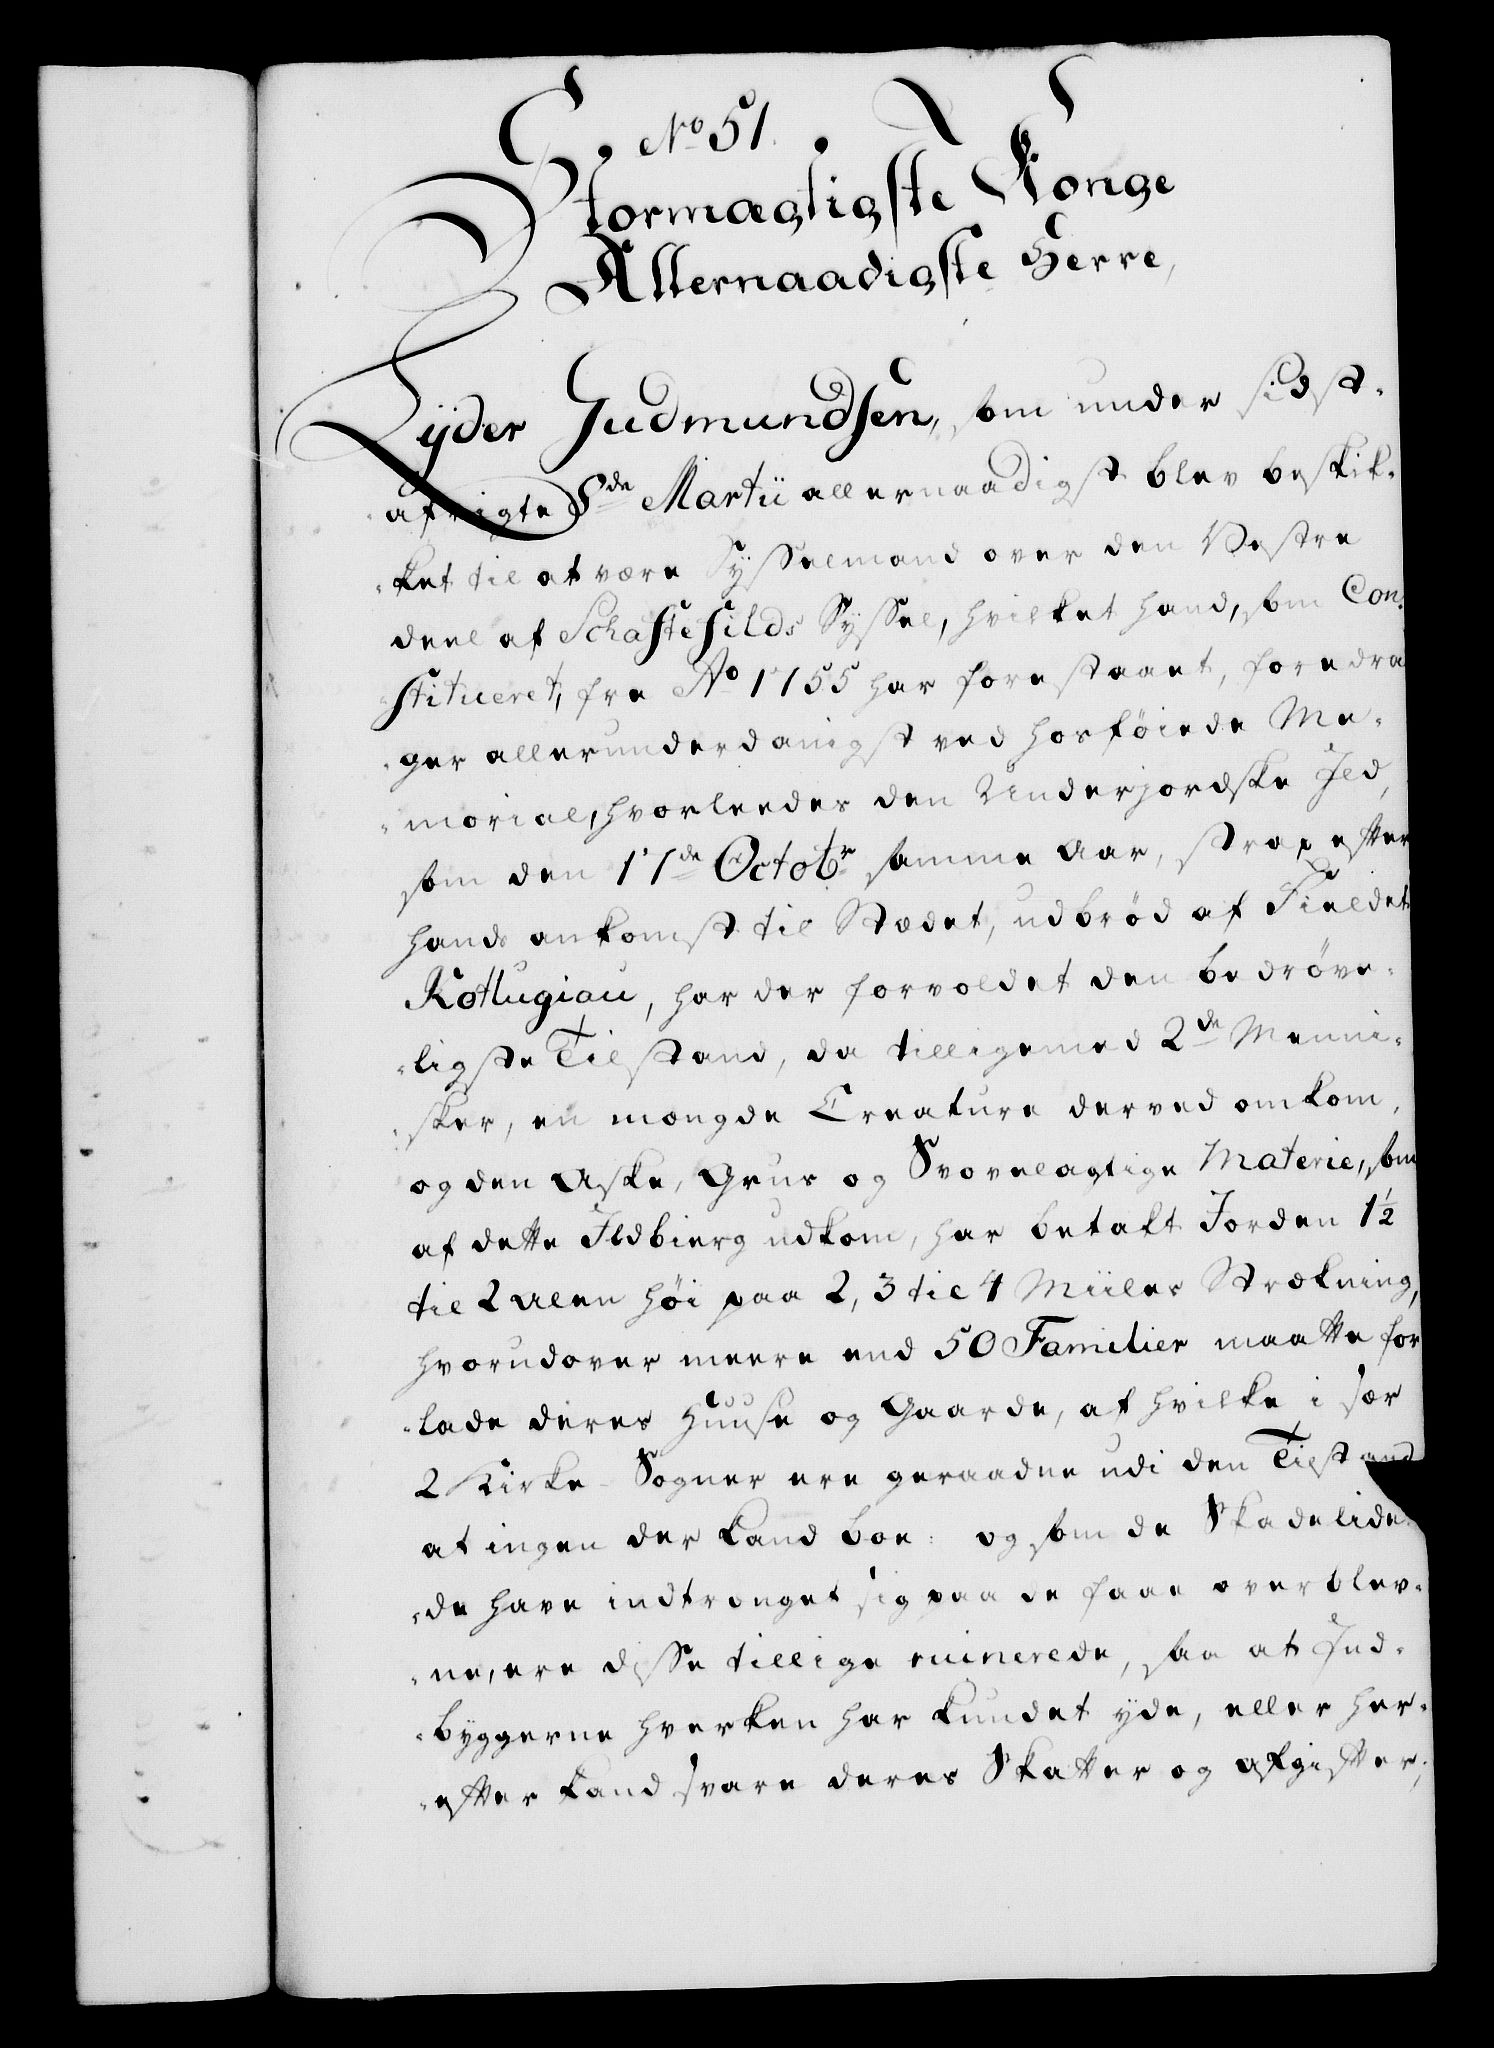 No 51.
Stormægtigste Konge
Allernaadigste Herre,
Lÿder Gudmundsen, som under sidst-
afvigte 8de Martii allernaadigst blev beskik-
-ket til at være Sÿsselmand over den Vestre
deel af Schaftefilds Sÿssel, hvilket hand, som Con-
stitueret, fra Ao 1755 har forestaaet, foredra
-ger allerunderdanigst ved hosföiede Me-
-morial, hvorleedes den Underjordske Ild,
som den 17de Octobr samme Aar, strax efter
hands ankomst til Stædet, udbröd af Fieldet
Kötlugiau, har der forvoldet den bedröve-
-ligste Tilstand, da tilligemed 2de Menni-
-sker, en mængde Creature derved omkom,
og den Aske, Grus og Svovelagtige Materie, som
af dette Ildbierg udkom, har betakt Jorden 1½
til 2 Alen höi paa 2, 3 til 4 Miiles Strækning,
hvorudover meere end 50 Familier maatte for
-lade deres Huuse og Gaarde, af hvilke i sær
2 Kirke-Sogner ere geraadne udi den Tilstand
at ingen der kand boe: og som de Skadelide-
-de have indtrænget sig paa de faae overblev-
-ne, ere disse tillige ruinerede, saa at Ind-
-byggerne hverken har kundet yde, eller her-
-efter kand svare deres Skatter og Afgifter,